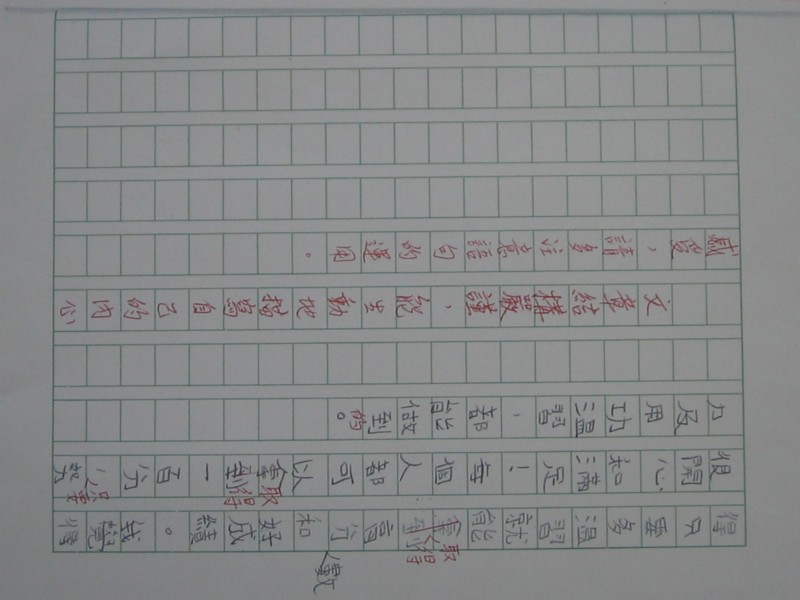 得只要多溫習就能拿到高分和好成績。我覺得
取得
數
很開心和滿足！每個人都可以拿到一百分，努
取得
只要
力及用功溫習，都能做到的。
文章結構嚴謹，能生動地描寫自己的內心
感受，請多注意語句的運用。